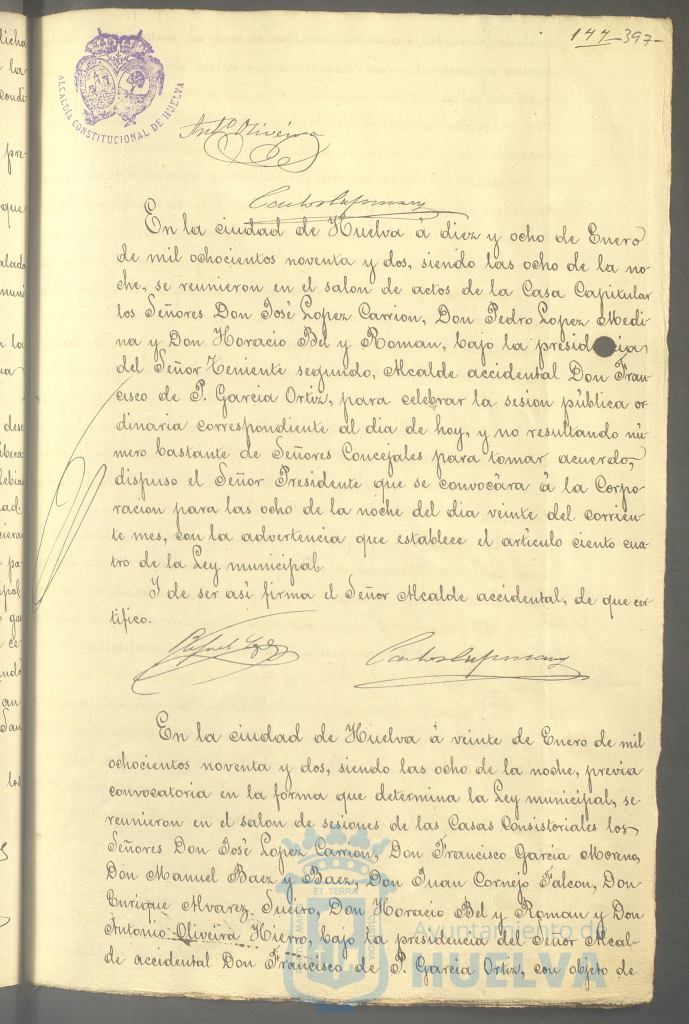 144 397-
ALCALDÍA CONSTITUCIONAL DE HUELVA
Antº Oliveira
En la ciudad de Huelva á diez y ocho de Enero
de mil ochocientos noventa y dos, siendo las ocho de la no-
che, se reunieron en el salon de actos de la Casa Capitular
los Señores Don José Lopez Carrion, Don Pedro Lopez Medi-
na y Don Horacio Bel y Roman, bajo la presidencia
del Señor Teniente segundo, Alcalde accidental Don Fran-
cisco de P. Garcia Ortiz, para celebrar la sesion pública or-
dinaria correspondiente al dia de hoy, y no resultando nú-
mero bastante de Señores Concejales para tomar acuerdo,
dispuso el Señor Presidente que se convocára á la Corpo-
racion para las ocho de la noche del dia veinte del corrien-
te mes, con la advertencia que establece el artículo ciento cua-
tro de la Ley municipal.
I de ser así firma el Señor Alcalde accidental, de que cer-
tifico.
En la ciudad de Huelva á veinte de Enero de mil
ochocientos noventa y dos, siendo las ocho de la noche, previa
convocatoria en la forma que determina la Ley municipal, se
reunieron en el salon de sesiones de las Casas Consistoriales los
Señores Don José Lopez Carrion, Don Francisco Garcia Moreno,
Don Manuel Baez y Baez, Don Juan Cornejo Falcon, Don
Enrique Alvarez Sueiro, Don Horacio Bel y Roman y Don
Antonio Oliveira Hierro, bajo la presidencia del Señor Alcal-
de accidental Don Francisco de P. Garcia Ortiz, con objeto de
Ayuntamiento de
HUELVA